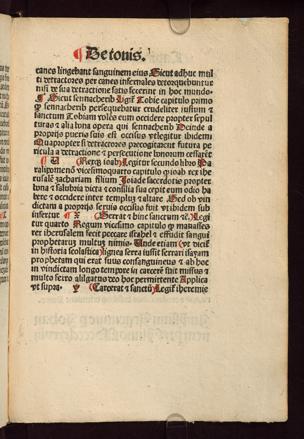 De ionis.
canes lingebant sanguinem eius Sicut adhuc mul
ti detractores per canes infernales detorquebuntur
nisi de sua detractione satis fecerint in hoc mundo
Sicut sennacherib Legit Tobie capitulo primo
sennacherib persequebatur crudeliter iustum et
sanctum Tobiam volens eum occidere propter sepul
turas et alia bona opera qui sennacherib Deinde a
proprijs pueris suis est occisus vt legitur ibidem
Quapropter si detractores precogitarent futura pe
ricula a detractione et persecutione bonorum cessarent
Legitur secundo libro Pa
ralipomenon vicesimoquarto capitulo
zachariam filium Joiade sacerdotis propter
bona et salubria dicta et consilia sua cepit eum odio ha
bere et occidere inter templum et altare Sed ob vin
dictam a proprijs seruis occisus fuit vt ibidem sub
infertur Serrat et hinc sanctum Legi
tur quarto Regum vicesimo capitulo manasses
rex iherusalem fecit peccare israhel et effudit sangui
prophetarum multum nimis Unde etiam vt dicit
in historia scolastica lignea serra iussit serrari isayam
prophetam qui erat suus consanguineus et ab hoc
in vindictam longo tempore in carcere fuit missus et
multo ferro alligatus hoc permittente Applica
vt supra Carcerat et sanctum Legitur iheremie